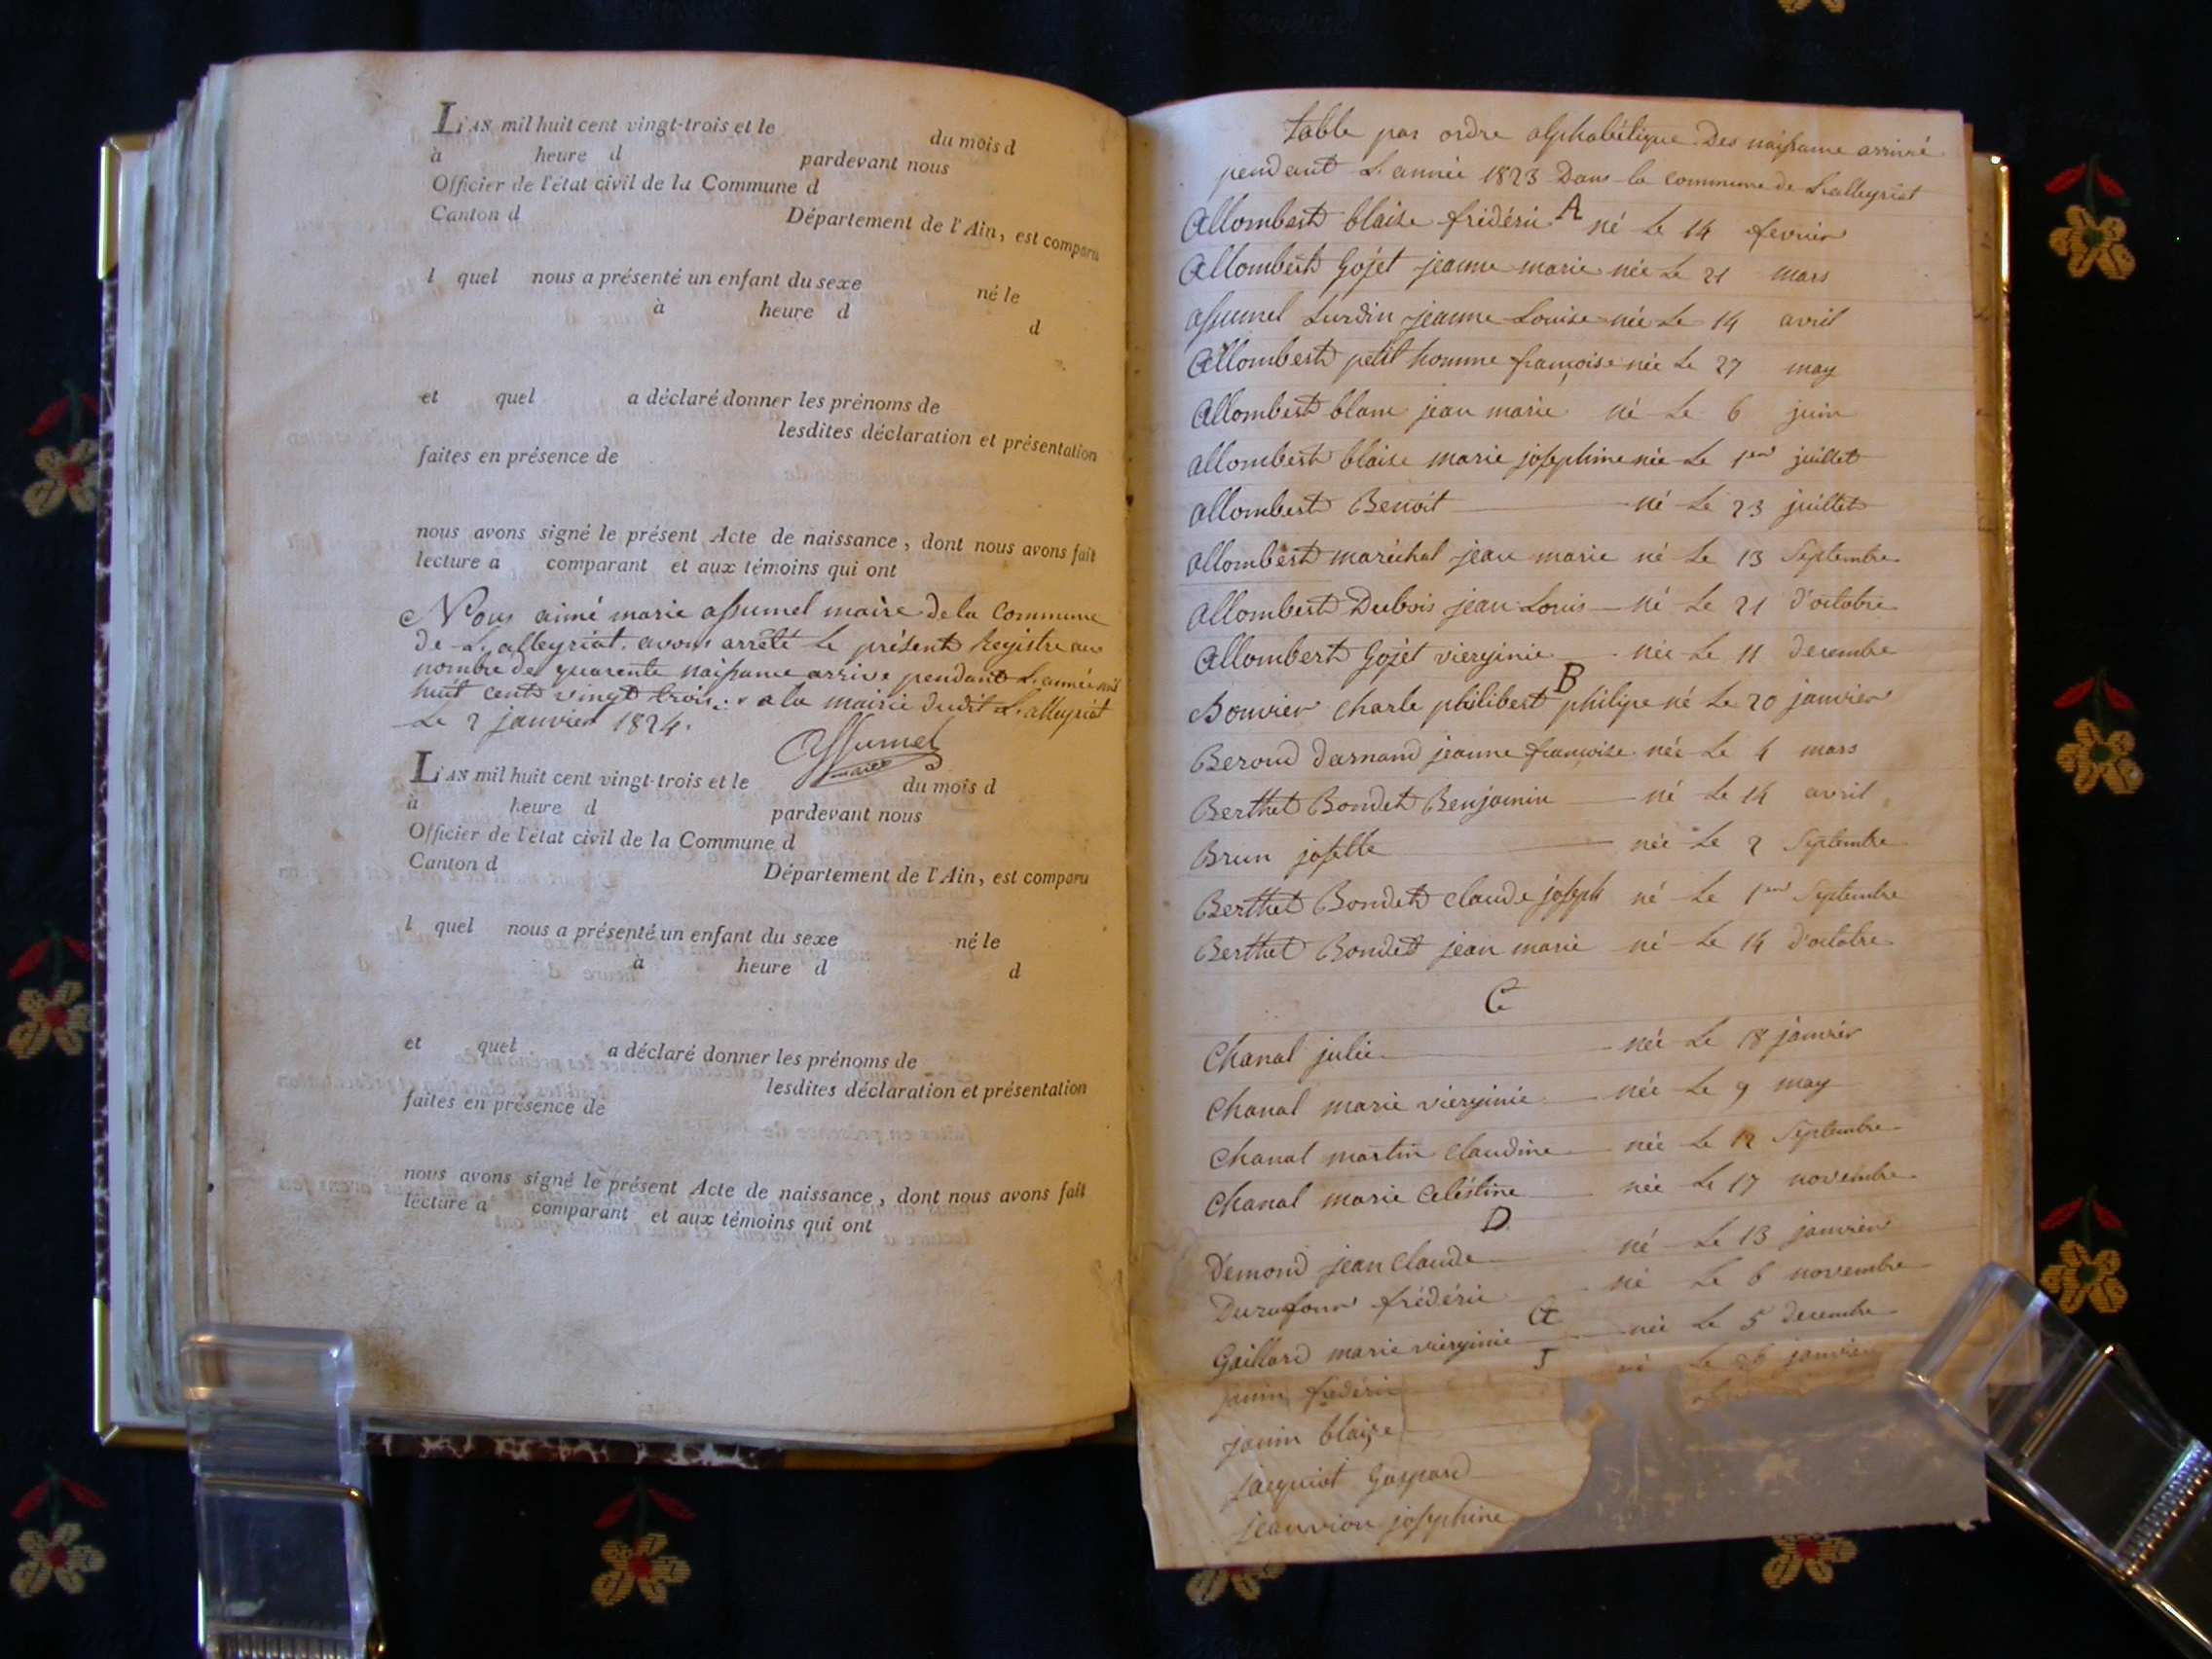 L'AN mil huit cent vingt-trois et le du mois d
à heure d pardevant nous
Officier de l'état civil de la Commune d
Canton d Département de l'Ain, est comparu
l quel nous a présenté un enfant du sexe né le
à heure d d
et quel a déclaré donner les prénoms de
lesdites déclaration et présentation
faites en présence de
nous avons signé le présent Acte de naissance, dont nous avons fait
lecture a comparant et aux témoins qui ont
Nous aimé marie assumel maire de la Commune
de L.alleyriat. avons arrêté le présent Registre au
nombre de quarente naissance arrive pendant L.année mil
huit cent vingt trois a la mairie dudit L.alleyriat
Le 2 janvier 1824.
Assumel
maire
L'AN mil huit cent vingt-trois et le du mois d
à heure d pardevant nous
Officier de l'état civil de la Commune d
Canton d Département de l'Ain, est comparu
l quel nous a présenté un enfant du sexe né le
à heure d d
et quel a déclaré donner les prénoms de
lesdites déclaration et présentation
faites en présence de
nous avons signé le présent Acte de naissance, dont nous avons fait
lecture a comparant et aux témoins qui ont
table par ordre alphabétique Des naissance arrivé
pendant L.année 1823 Dans la commune de L.alleyriat
A
Allombert blaise frédéric né Le 14 fevrier
Allombert Gojet jeanne marie née Le 21 mars
assumel Lurdin jeanne Louise née Le 14 avril
Allombert petit homme françoise née Le 27 may
Allombert blanc jean marie né Le 6 juin
allombert blaise marie josephine née Le 1er juillet
allombert Benoit né Le 23 juillet
allombert maréchal jean marie né Le 13 Septembre
allombert Dubois jean Louis né Le 21 d'octobre
Allombert Gojet vierginie née Le 11 decembre
B
Bouvier charle philibert philipe né Le 20 janvier
Beroud darnand jeanne françoise née Le 4 mars
Berthet Bondet Benjamin né Le 14 avril
Brun joselle née Le 2 Septembre
Berthet Bondet claude joseph né Le 1er Septembre
Berthet Bondet jean marie né Le 14 d'octobre
C
Chanal julie née Le 18 janvier
Chanal marie vierginie née Le 9 may
Chanal martin claudine née Le 12 Septembre
Chanal marie Celéstine née Le 17 novembre
D
Démond jean claude né Le 13 janvier
Durafour frédéric né Le 6 novembre
G
Gaillard marie vierginie née Le 5 decembre
J
janin frédéric né Le 26 janvier
janin blaise
jacquiot Gaspard
jeanvion josephine